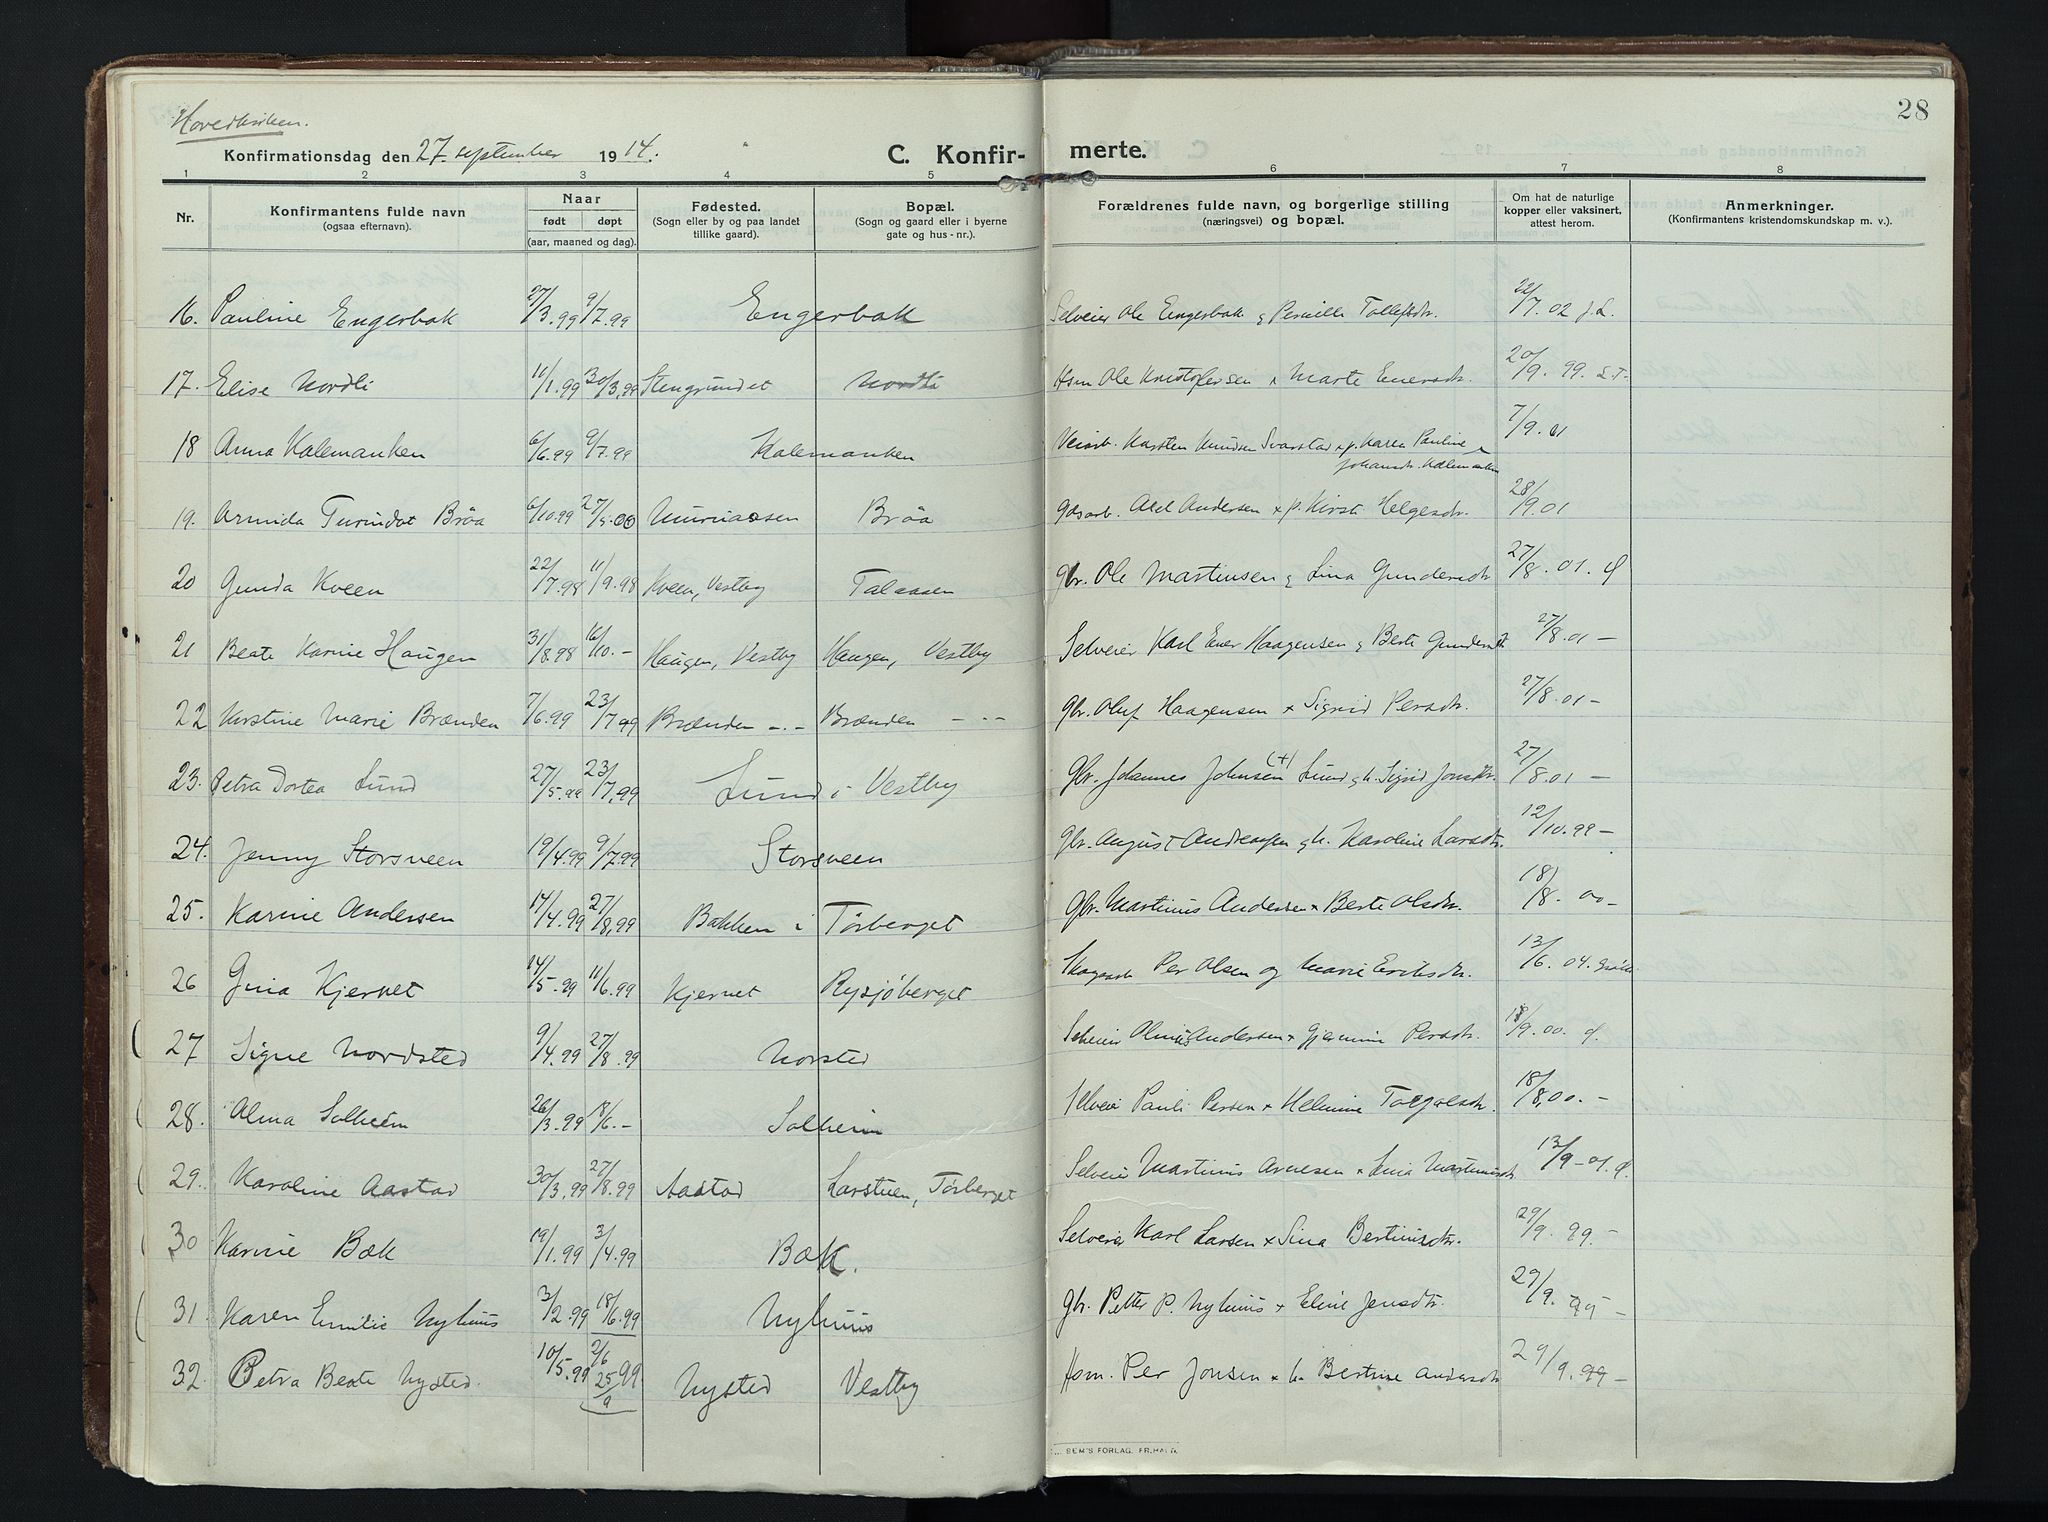 28
Hovedkirken.
Konfirmationsdag den 27 september 1914.
C. Konfir- merte.
1 2 3 4 5 6 7 8
Nr.
Konfirmantens fulde navn
(ogsaa efternavn).
Naar
født døpt
(aar, maaned og dag).
Fødested.
(Sogn eller by og paa landet
tillike gaard).
Bopæl.
(Sogn og gaard eller i byerne
gate og hus-nr.).
Forældrenes fulde navn, og borgerlige stilling
(næringsvei) og bopæl.
Om hat de naturlige
kopper eller vaksinert,
attest herom.
Anmerkninger.
(Konfirmantens kristendomskundskap m. v.).
16. Pauline Engerbak 27/3.99 9/7.99 Engerbak Selveier Ole Engerbak & Pernille Tollefsdtr. 22/7.02 J.L.
17. Elise Nordli 11/1.99 30/3.99 Stengrundet Nordli Hsm Ole Kristofersen & Marte Enersdtr. 20/9.99. S.T.
18 Anna Kalemanken 6/6.99 9/7.99 Kalemanken Veiarb. Karsten Knudsen Svarstad & p. Karen Pauline 7/9.01
Johansdtr. Kalemanken
19. Armida Turindat Brøa 6/10.99 27/5.00 Brøa Gdsarb. Axel Andersen & p. Kirsti Helgesdtr. 28/9.01
20 Gunda Kveen 22/7.98 11/9.98 Kveen, Vestby Talaasen Gbr. Ole Martinsen & Lina Gundersdtr 27/8.01.
21 Beate Karine Haugen 31/8.98 16/10.- Haugen, Vestby Haugen, Vestby Selveier Karl Ener Haagensen & Berte Gundersdt 27/8.01 -
22 Kirstine Marie Brænden 7/6.99 23/7.99 Brænden -.- Brænden -.- Gbr. Oluf Haagensen & Sigrid Persdtr. 27/8.01 -
23. Petra Dortea Lund 27/5.99 23/7.99 Lund i Vestby Gbr. Johannes Johnsen (+) Lund & h. Sigrid Jonsdtr. 27/8.01 -
24. Jenny Storsveen 19/4.99 9/7.99 Storsveen Gbr. August Andreasen & h. Karoline Larsdtr. 12/10.99 -
25. Karine Andersen 14/4.99 27/8.99 Bakken i Tørberget Gbr. Martinus Andersen & Berte Olsdtr. 18/8.00 -
26 Gina Kjernet 14/5.99 11/6.99 Kjernet Rysjøberget Skogsarb Per Olsen og Marie Eriksdtr. 13/6.04.
27 Signe Nordsted 9/4.99 27/8.99 Norsted Selveier Andersen & Persdtr. 18/9.00.
28. Alma Solheim 26/3.99 18/6.- Solheim Selveier Pauli Persen & Helmine 18/8.00. -
29. Karoline Aastad 30/3.99 27/8.99 Aastad Larstuen, Tørberget Selveier Martinus Arnesen & Lina Martinusdtr 13/9-01.
30 Karine Bæk 19/1.99 3/4.99 Bæk. Selveier Karl Larsen & Sina Bertinusdtr. 29/9.99. -
31 Karen Emilie Nyhuus 3/2.99 18/6.99 Nyhuus Gbr. Petter P. Nyhuus & Eline Jensdtr. 29/9.99 -
32. Petra Beate Nysted. 10/5.99 2/6 25/9 99 Nysted Vestby Hsm. Per Jonsen & h. Bertine Andersdtr 29/9.99 -
SEM'S FORLAG, FR.HALD.